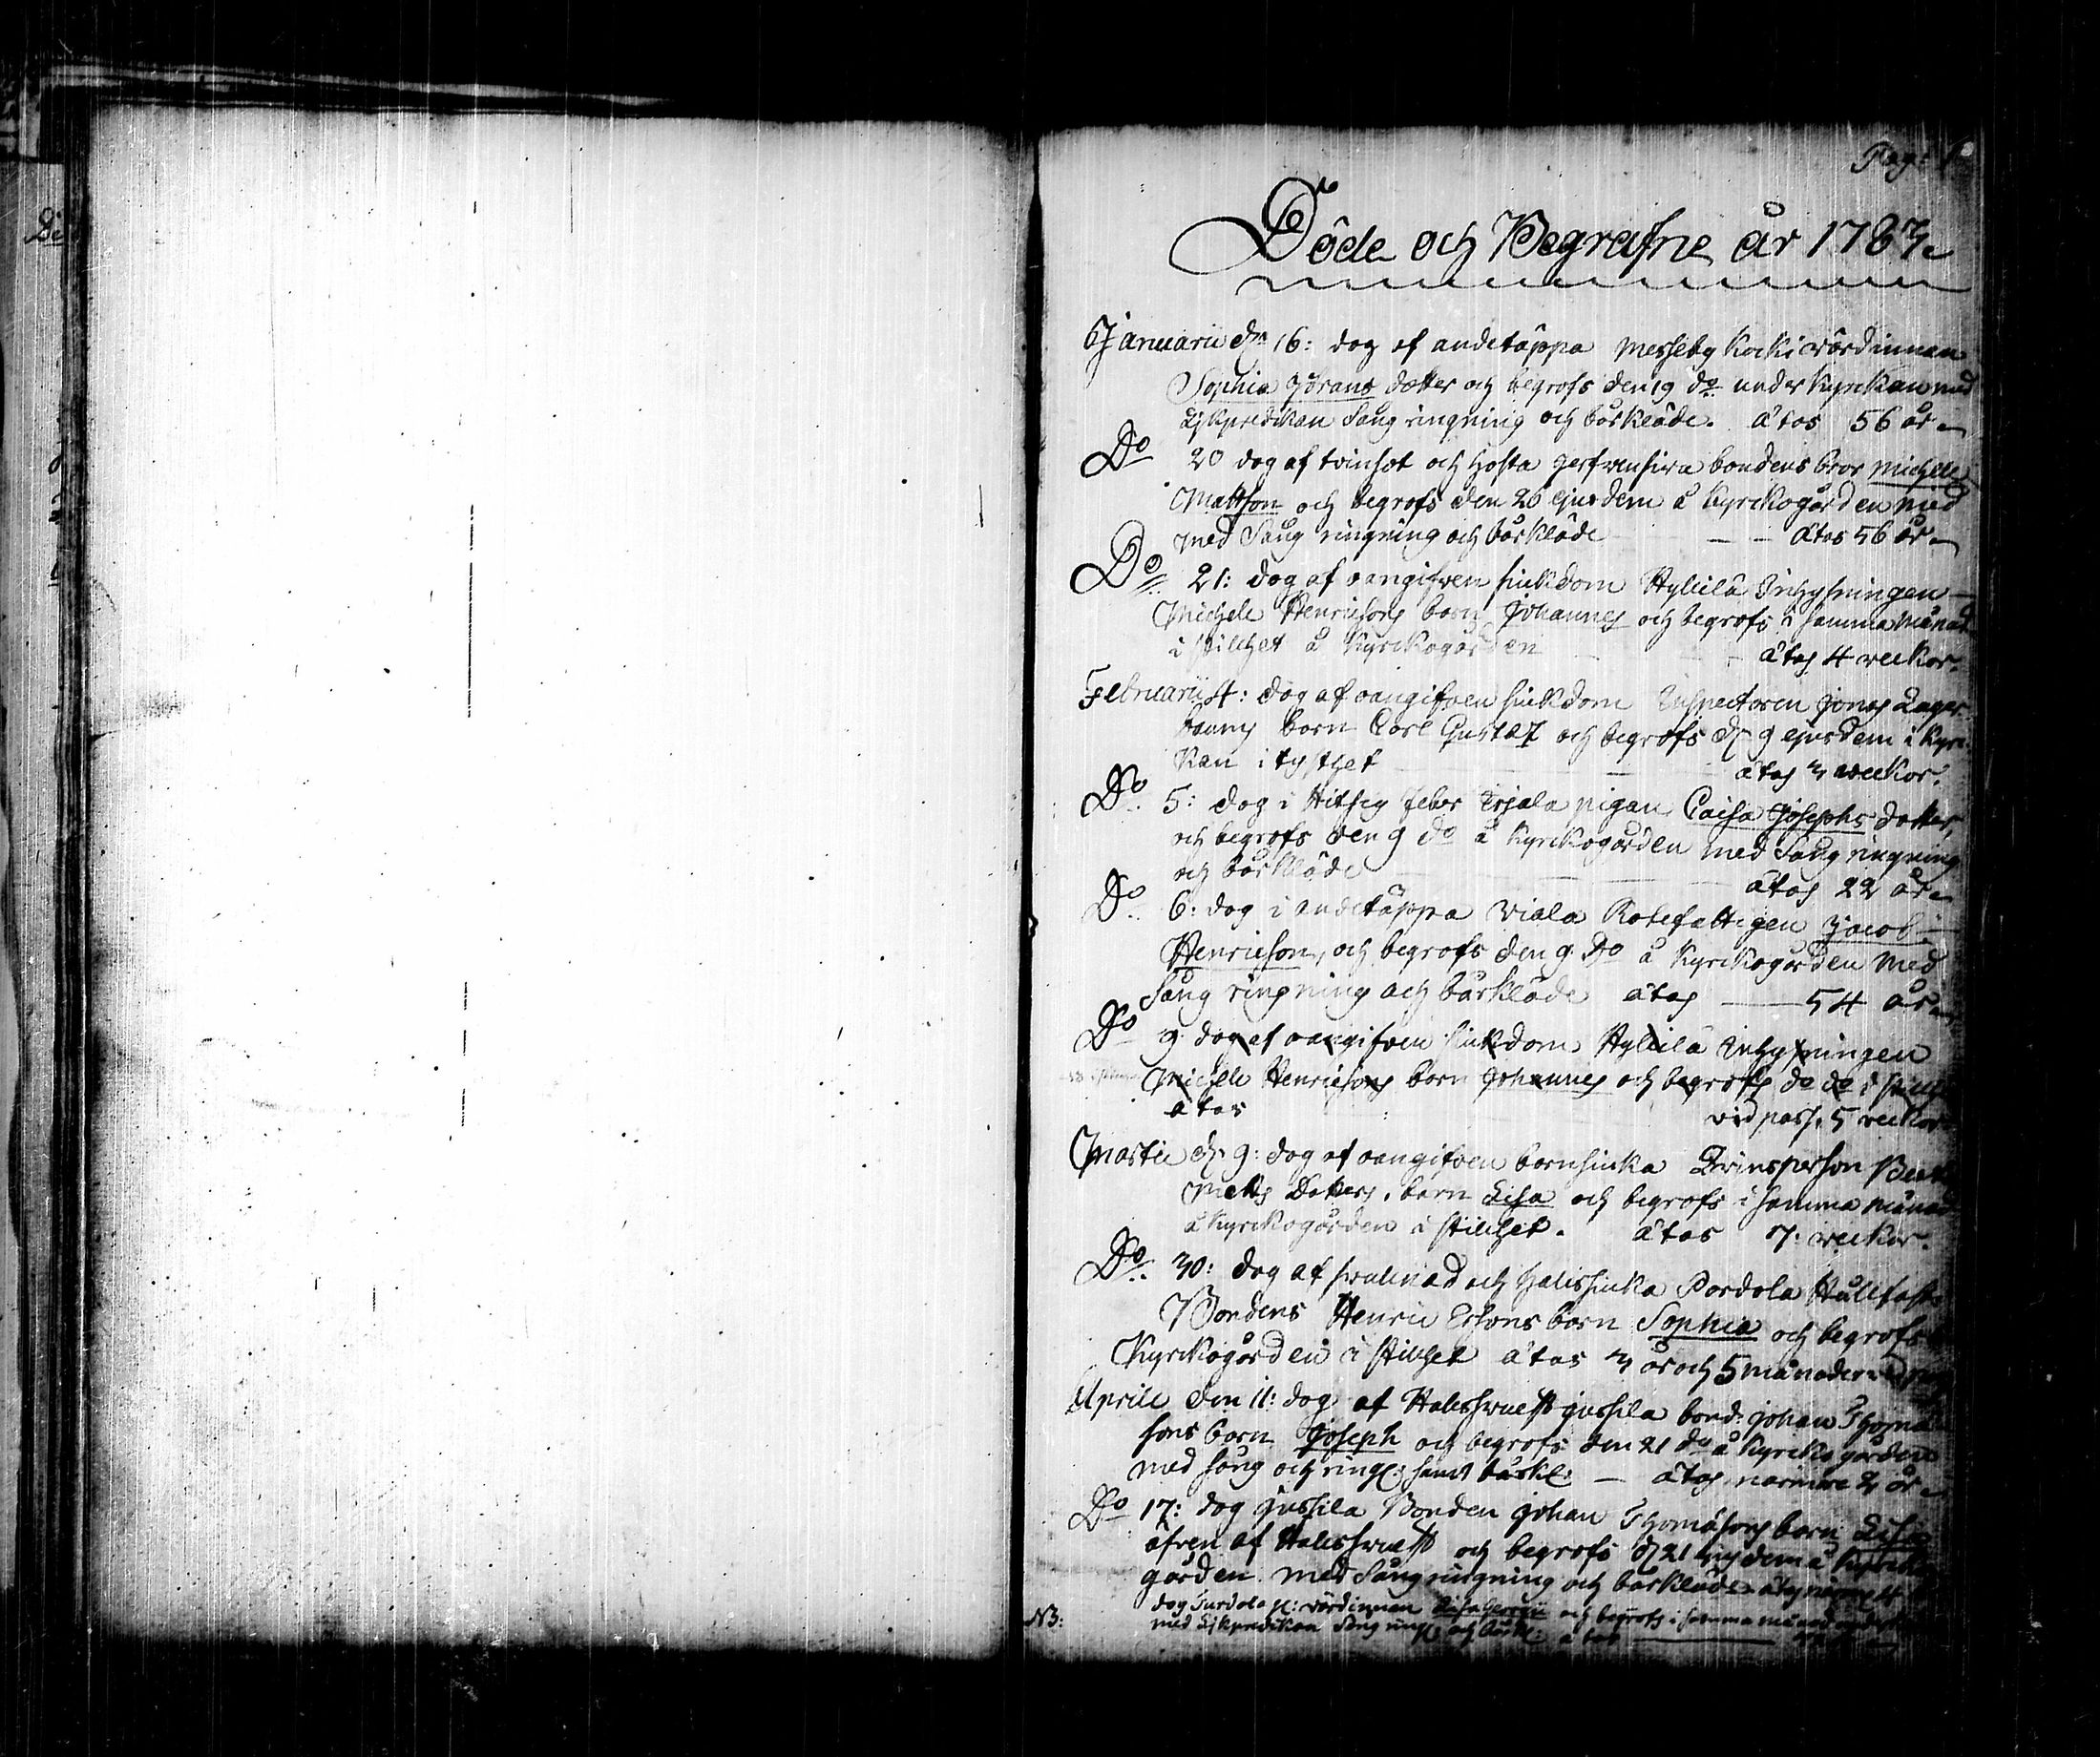 Pag: 1
Döde och Begrafne år 1783.
Januarii dn 16: dag af andetäppa Messeby Kocki wärdinnan
Sophia Jörans dotter och begrofs den 19 do under Kyrckan med
Likpredikan Sång ringning och bårkläde. ätas 56 år
Do 20 dag af tvinsot och hosta bondens bror Michell
Mattson och begrofs den 26 ejusdem å Kyrckogården med
med Sång ringning och bårkläde - - ätas 56 år
Do 21: dag af oangifven siukdom Hylielä Inhysningen
Michele Henricsons barn Johannes och begrofs i samma månad
i stillhet å Kyrckogården - - ätas 4 veckor.
Februarii 4: dag af oangifven siukdom Inspectoren Jonas Lager
baums barn Carl Gustaf och begrofs d. 9 ejusdem i Kyrc
kan i tysthet ätas 3 veckor.
Do 5: dag i Hitsig feber Erjala pigan Caisa Josephs dotter,
och begrofs den 9 do å Kyrckogården med Sång ringning
och bårkläde ätas 22 år
Do 6: dag i andetäppa Viala Rotefattigen Jacob
Henricson, och begrofs den 9 Do å Kyrckogården med
Sång ringning och bårkläde ätas 54 år
Do 9 dag af oangifven siukdom Hylielä Inhysningen
Michele Henricsons barn Johannes och begrofs do do i
ätas vid pass. 5 veckor
Martii d. 9: dag af oangifven barnsiuka
Matts Dotters. barn Lisa och begrofs i samma månad
å Kyrckogården i stillhet. ätas 7: veckor.
Do 30: dag af svulnad och halssiuka Pordola
Bondens Henric Ersons barn Sophia och begrofs
Kyrckogården i stillhet ätas 3 år och 5 månader
Aprill den 11: dag af Halssvulst Jussila bond: Johan Thoma
sons barn Joseph och begrofs den 21 do å Kyrckogården
med sång och ring: samt bårkl: - ätas närmre 2 år
Do 17: dag Jussila Bonden Johan Thomäsons barn Lisa
äfven af Halssvulst och begrofs d 21 ejusdem å Kyrcko
gården med Sång ringning och bårkläde ätas närmre 4
dag wärdinnan och begrofs i samma månad
NB: med Likpredikan Sång ring och bårkl: ätas